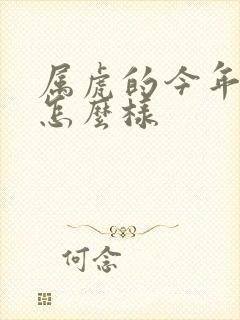 属虎的今年
怎麼样
何念